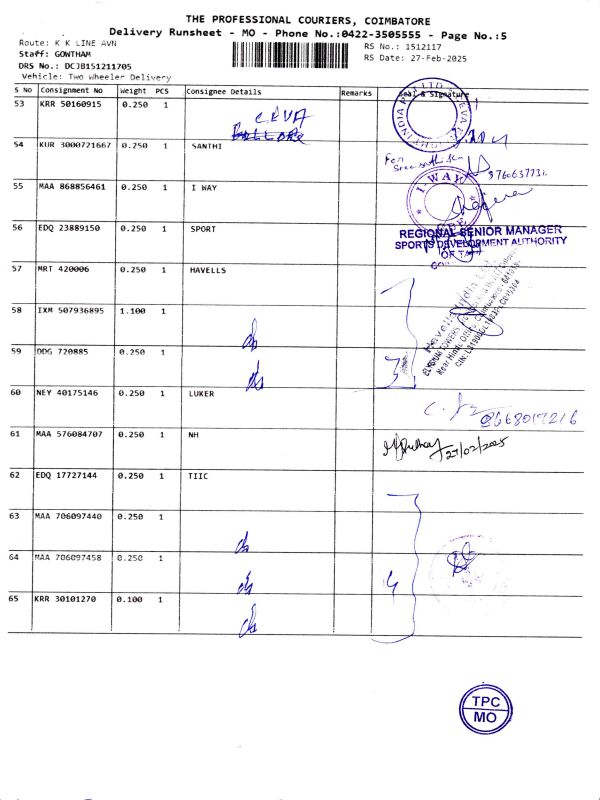 THE PROFESSIONAL COURIERS, COIMBATORE
Delivery Runsheet - MO - Phone No.:0422-3505555 - Page No.:5
Route: K K LINE AVN
Staff: GOWTHAM
DRS No.: DCJB151211705
Vehicle: Two Wheeler Delivery
RS No.: 1512117
RS Date: 27-Feb-2025
S No Consignment No Weight PCS Consignee Details Remarks Seal & Signature
53 KRR 50160915 0.250 1
54 KUR 3000721667 0.250 1 SANTHI
For
9760637731
55 MAA 868856461 0.250 1 I WAY
I-WAY
56 EDQ 23889150 0.250 1 SPORT
REGIONAL SENIOR MANAGER
SPORTS DEVELOPMENT AUTHORITY
57 MRT 420006 0.250 1 HAVELLS
Havells India Ltd.
58 IXM 507936895 1.100 1
59 DDG 720885 0.250 1
3
60 NEY 40175146 0.250 1 LUKER
61 MAA 576084707 0.250 1 NH
27/02/2025
62 EDQ 17727144 0.250 1 TIIC
63 MAA 706097440 0.250 1
64 MAA 706097458 0.250 1
4
65 KRR 30101270 0.100 1
TPC
MO